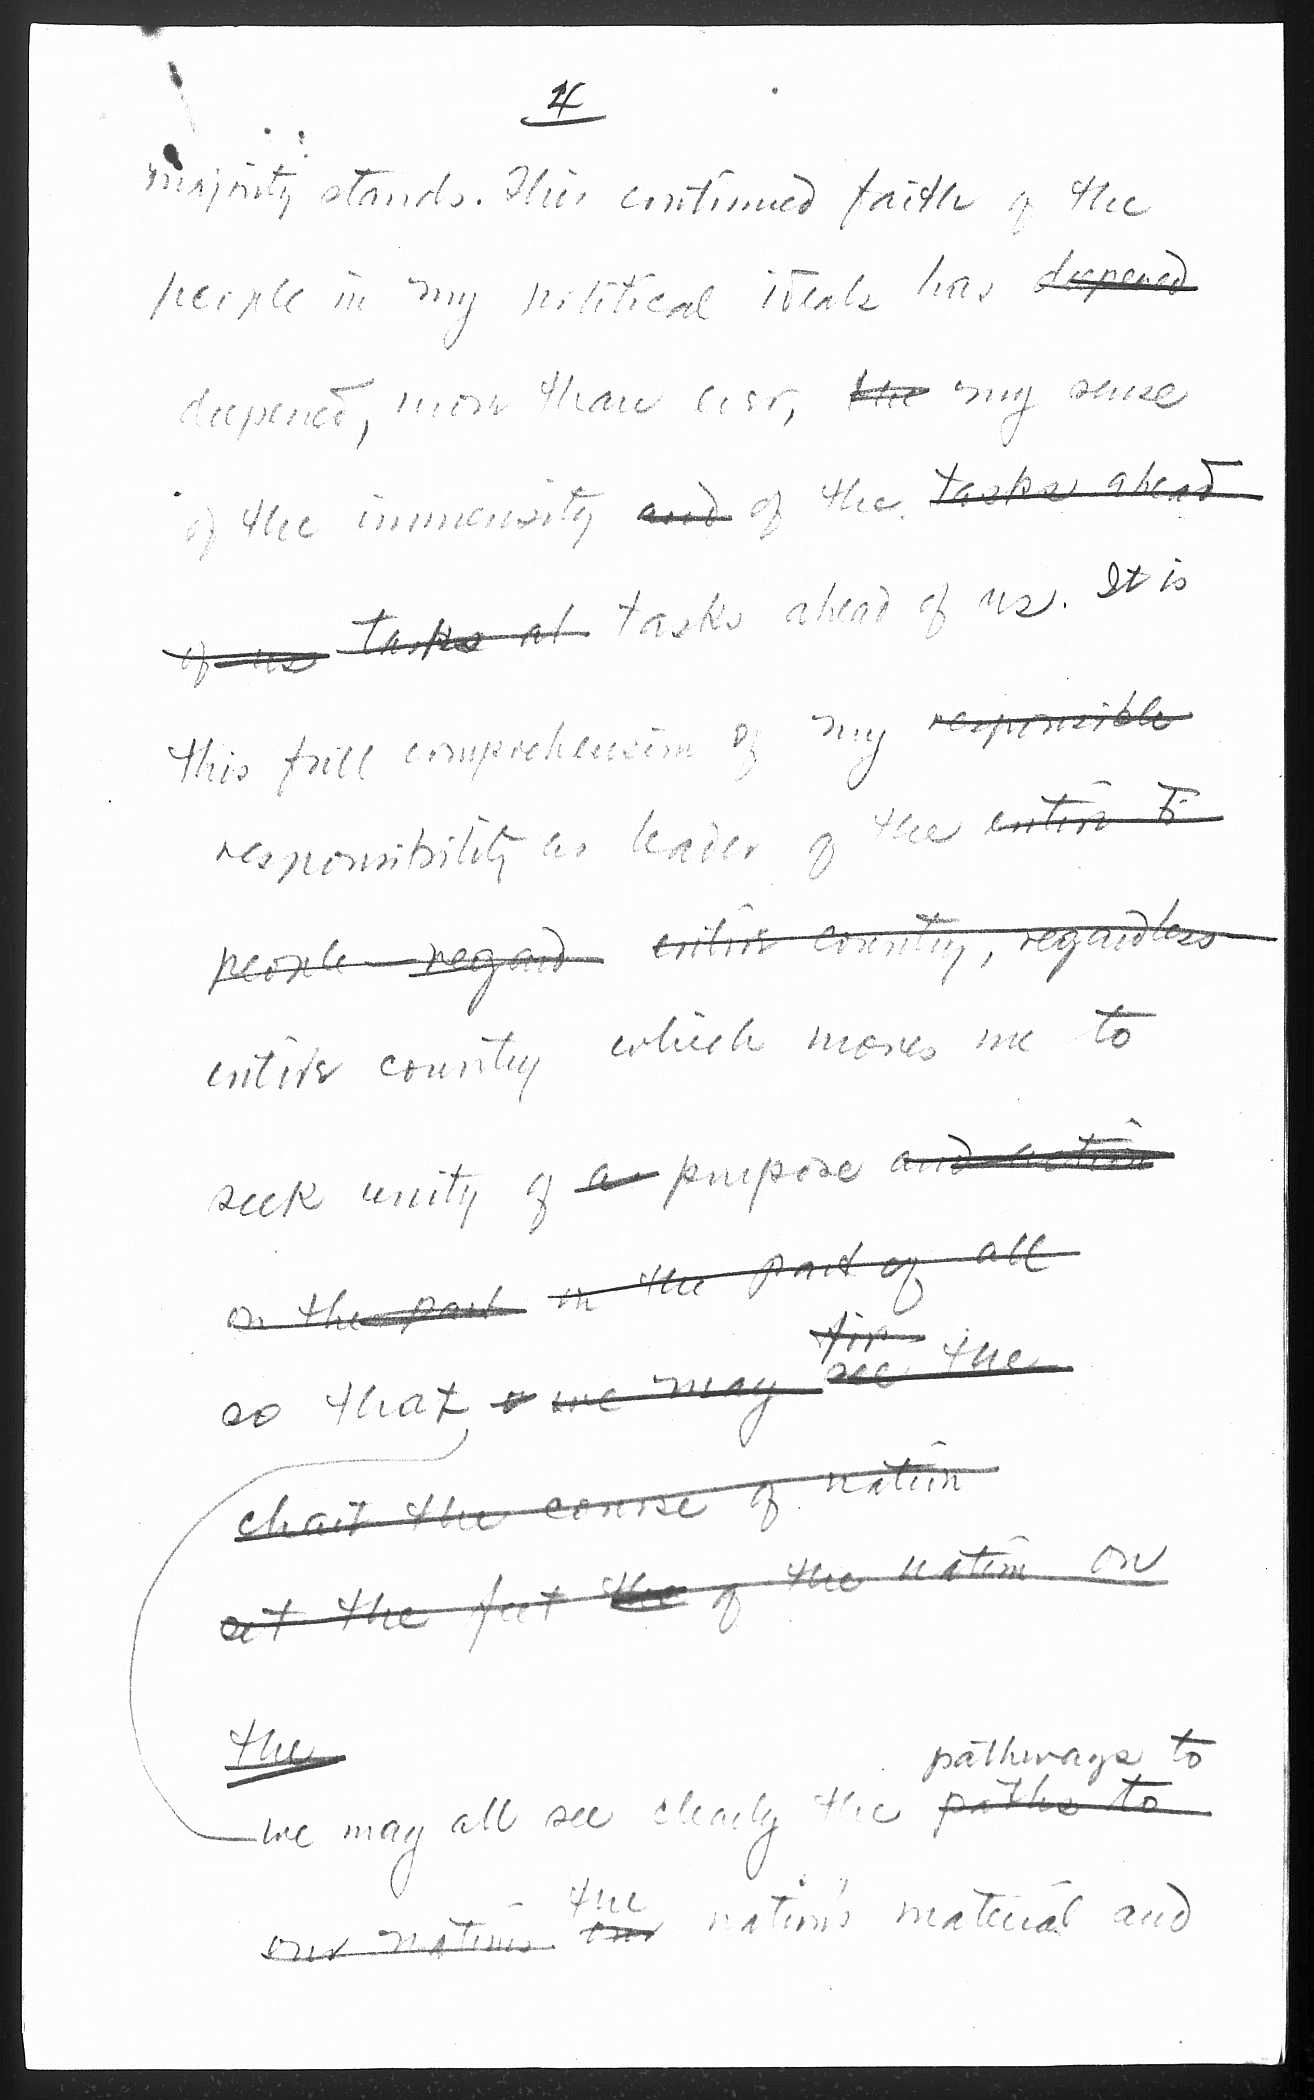 4
majority stands. This continued faith of the
people in my political ideals has deepened
deepened, more than ever, the my sense
of the immensity and of the tasks ahead
of us tasks ah tasks ahead of us. It is
this full comprehension of my responsible
responsibility as leader of the entire
people regard entire country, regardless
entire country which moves me to
seek unity of a purpose and action
on the part on the part of all
for
so that we may see the
chart the course of nation
set the feet the of the nation on
the
pathways to
we may all see clearly the paths to
the
our nation's our nation's material and